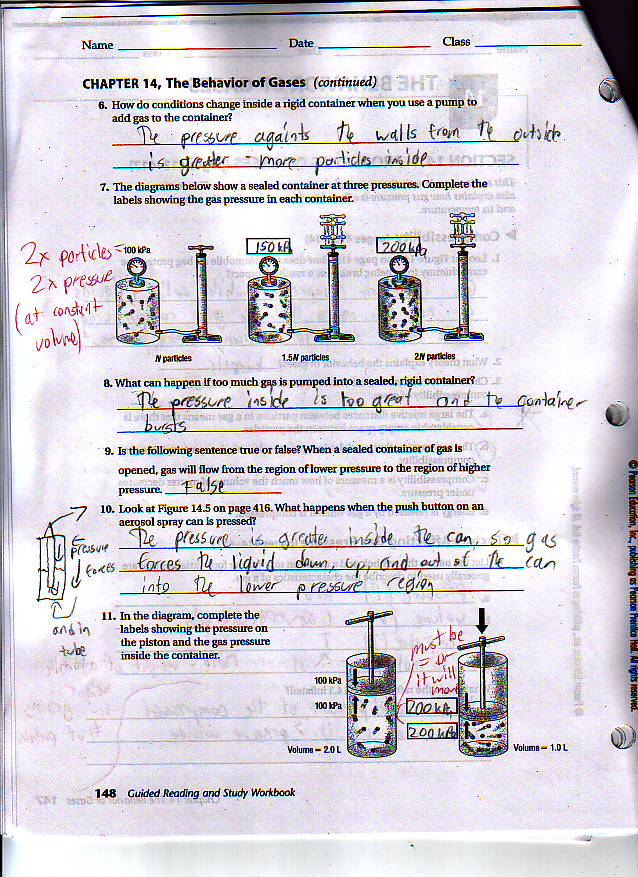 Name Date Class
CHAPTER 14, The Behavior of Gases (continued)
6. How do conditions change inside a rigid container when you use a pump to
add gas to the container?
The pressure againts the walls from the outside
is greater more particles inside
7. The diagrams below show a sealed container at three pressures. Complete the
labels showing the gas pressure in each container.
2x particles =
2x pressure
(at constant
volume)
100 kPa
150 kPa
200 kPa
N particles
1.5N particles
2N particles
8. What can happen if too much gas is pumped into a sealed, rigid container?
The pressure inside is too great and the container
bursts
9. Is the following sentence true or false? When a sealed container of gas is
opened, gas will flow from the region of lower pressure to the region of higher
pressure. False
10. Look at Figure 14.5 on page 416. What happens when the push button on an
aerosol spray can is pressed?
The pressure is greater inside the can, so gas
forces the liquid down, up and out of the can
into the lower pressure region
pressure
forces
and in
tube
11. In the diagram, complete the
labels showing the pressure on
the piston and the gas pressure
inside the container.
must be
= or
it will
move
100 kPa
100 kPa
200 kPa
200 kPa
Volume = 2.0 L
Volume = 1.0 L
148 Guided Reading and Study Workbook
© Pearson Education, Inc., publishing as Pearson Prentice Hall. All rights reserved.